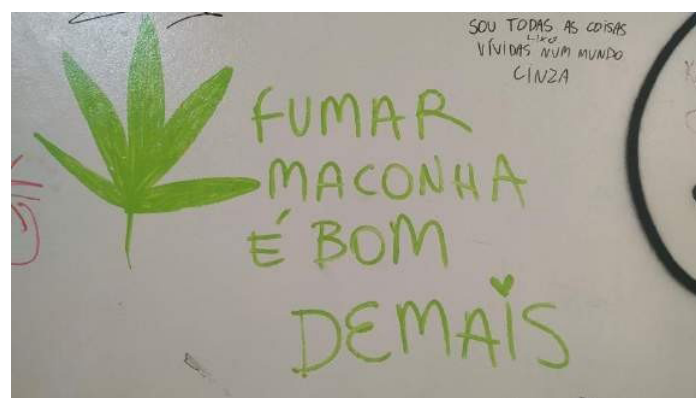 SOU TODAS AS COISAS
LIXO
VÍVIDAS NUM MUNDO
CINZA
FUMAR
MACONHA
É BOM
DEMAIS